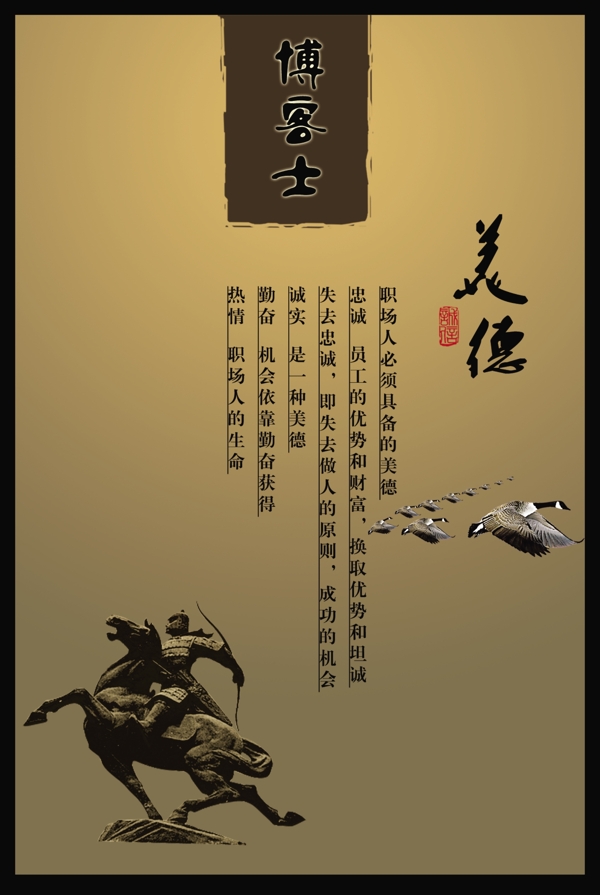 博客士
美德
职场人必须具备的美德
忠诚　员工的优势和财富，换取优势和坦诚
失去忠诚，即失去做人的原则，成功的机会
诚实　是一种美德
勤奋　机会依靠勤奋获得
热情　职场人的生命